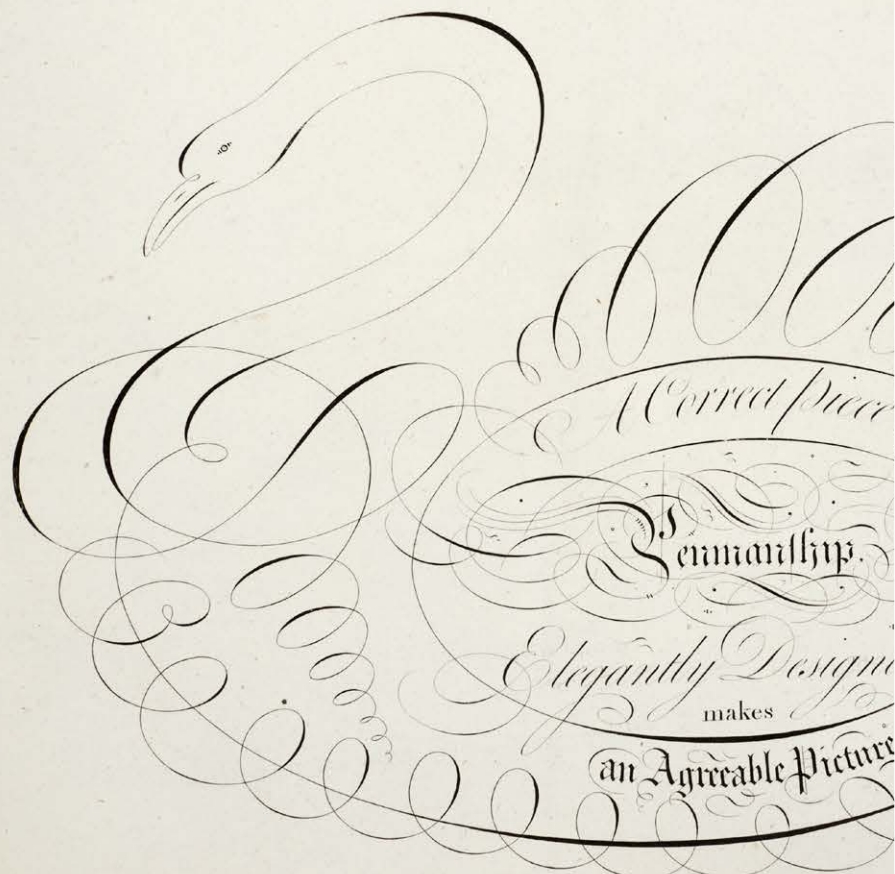 A Correct piece
Penmanship.
Elegantly Design
makes
an Agreeable Picture